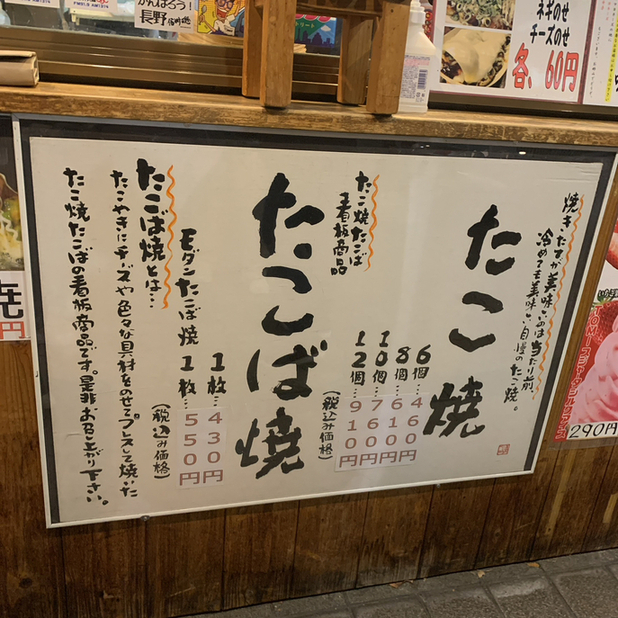 がんばろう!
長野
ネギのせ
チーズのせ
各、60円
焼きたてが美味いのは当たり前
冷めても美味い自慢のたこ焼。
たこ焼
6個…460円
8個…610円
10個…760円
12個…910円
(税込み価格)
たこ焼たこば
看板商品
たこば焼
1枚…430円
モダンたこば焼
1枚…550円
(税込み価格)
たこば焼とは…
たこやきにチーズや色々な具材をのせてプレスして焼いた
たこ焼たこばの看板商品です。是非お召し上がり下さい。
円
290円